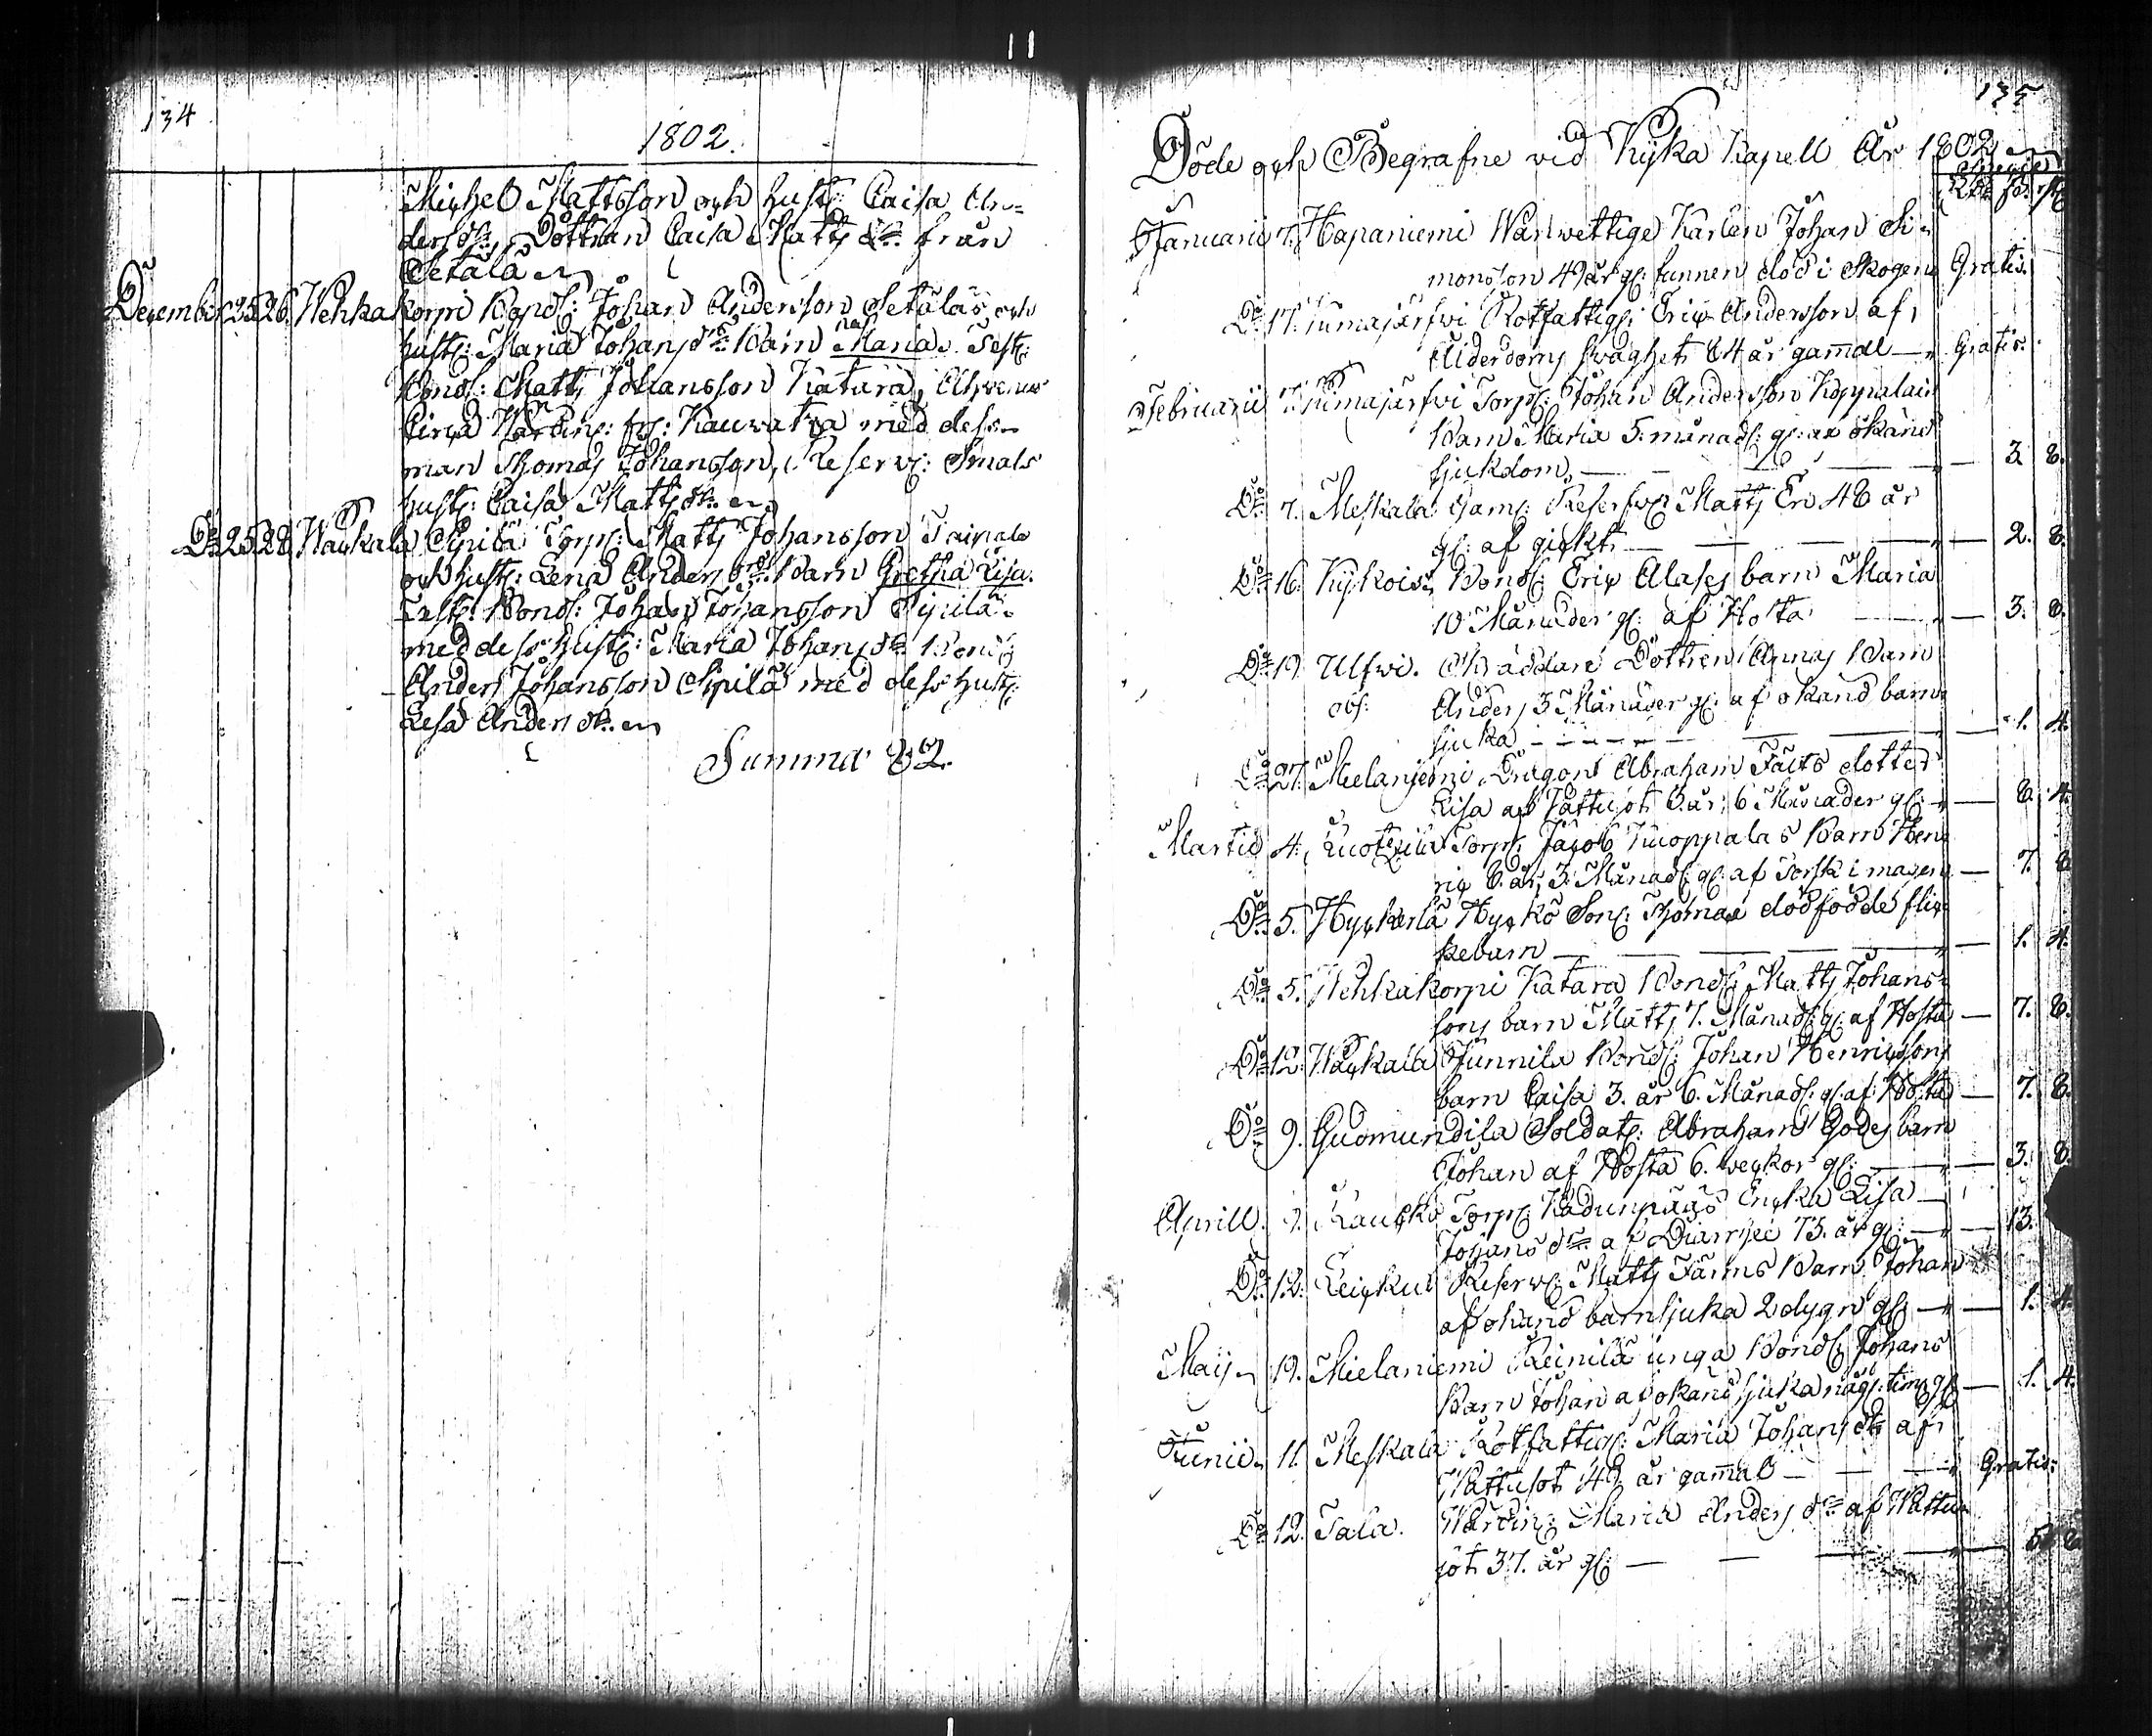 134
1802.
Michel Mattsson och hust: Caisa An=
ders dr: Dottran Caisa Matts dr. från
Setälä
December 25 26. Wehkakorpi Bond: Johan Andersson Setäläs och
hust: Maria Johans dr: Barn Maria. Test:
Bond: Matts Johansson Katara,
med dess
man Thomas Johansson, Reserv:
hust: Caisa Matts dr.
Do 25 28 Wäckala Sipilä Torp: Matts Johansson Taipale
och hust: Lena Anders dr: Barn Gretha Lisa.
Test: Bond: Johan Johansson Sipilä
med dess hust: Maria Johans dr. Bond:
Anders Johansson Sipilä med dess hust:
Lisa Anders dr.
Summa 82.
135
Döde och Begrafne vid Kyka Kapell År 1802
Januarii 7. Hapaniemi Wanwettige Karlen Johan Si-
monsson 49 år gl: funnen död i Skogen Gratis.
Do 17. Tumajärfwi Rotfattig: Eric Andersson af
Ålderdoms swaghet 84 år gammal — Gratis.
Februarii 7. Tumajärfwi Torp: Johan Andersson Koppalais
Barn Maria 5. månad: gl: af okänd
sjukdom, — 3. 8.
Do 7. Meskala Gam: Reserv: Matts En 48 år
gl: af gickt — 2. 8.
Do 16. Kykois Bond: Eric Alases barn Maria
10 Månader gl: af Hosta — 3. 8.
Do 19. Ulfwi. Skräddare Dottren Annas Barn
obs: Anders 3 Månader gl: af okänd barn-
sjuka — 1. 4.
Do 27. Mielaniemi Dragon Abraham Fälts dotter
Lisa af Wattusot 3. år, 6 Månader gl: — 8. 4.
Martii 4. Torp: Jacob Kuoppalas Barn Hen
ric 6. år, 3. Månad: gl: af Torsk i magen — 7. 8
Do 5. Hyckerlä Hyckö Son: Thomas dödfödde flic
kebarn — 1. 4.
Do 5. Wehkakorpi Katara Bond: Matts Johans-
sons barn Matts 7. Månad: gl: af Hosta — 7. 8.
Do 12. Wäckala Junnila Bond: Johan Henricssons
barn Caisa 3. år 6. Månad: gl: af Hosta — 7. 8.
Do 9. Gudmundila Soldat: Abraham Godes barn
Johan af Hosta 6. weckor gl: — 3. 8.
Aprill. Torp: Enka Lisa —
Johans dr. af Diarrhei 73. år gl: — 13.
Do 12. Reserv: Matts Färms Barn Johan
af okänd barnsjuka 2 dygn gl: — 1. 4.
Maij 19. Mielaniemi Reinilä unga Bond: Johans
Barn Johan af okänd sjuka någ: tim: gl: — 1. 4.
Junii 11. Meskala Rotfattig: Maria Johans dr. af
Wattusot 49 år gammal — Gratis:
Do 12. Tala. Wärdin: Maria Anders dr. af Wattu-
sot 37. år gl: —